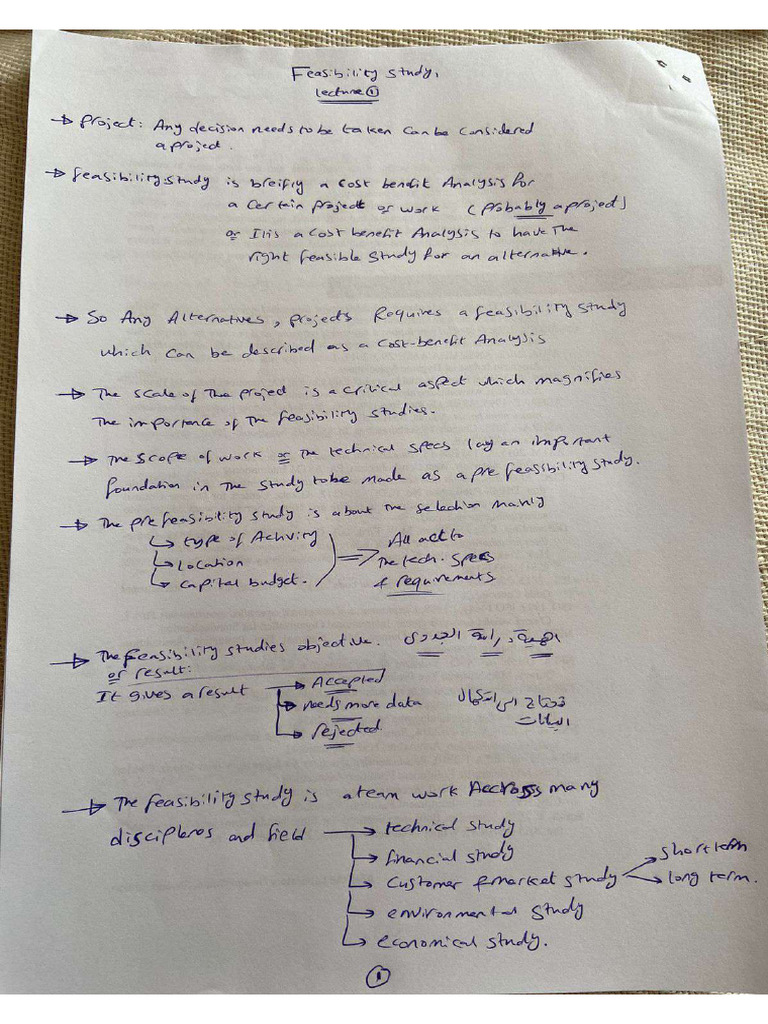 Feasibility study,
lecture ①
→ project: Any decision needs to be taken can be considered
a project.
→ feasibility study is breifly a cost benefit Analysis for
a certain project or work (probably a project)
or It is a cost benefit Analysis to have the
right feasible study for an alternative.
→ So Any Alternatives, projects Requires a feasibility study
which can be described as a cost-benefit Analysis
→ The scale of the project is a critical aspect which magnifies
the importance of the feasibility studies.
→ The scope of work or the technical specs lay an important
foundation in the study to be made as a pre feasibility study.
→ The pre feasibility study is about the selection mainly
↳ type of Activity
↳ Location
↳ capital budget.
All act to
the tech. specs
& requirements
→ The feasibility studies objective. دراسة الجدوى
or result:
It gives a result → Accepted
→ needs more data تحتاج الى استكمال
البيانات
→ rejected
→ The feasibility study is a team work Accross many
disciplenes and field → technical study
→ financial study
→ customer & market study → short term
→ long term.
→ environmental study
→ economical study.
①